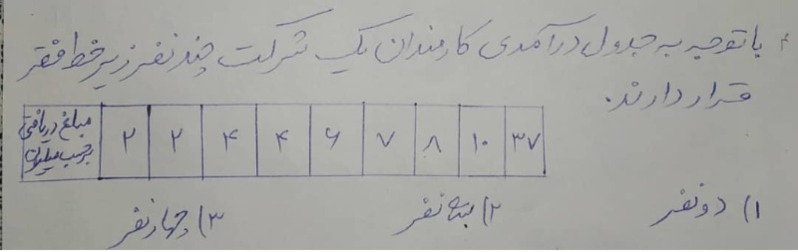 با توجه به جدول درآمدی کارمندان یک شرکت چند نفر زیر خط فقر
قرار دارند.
مبلغ دریافتی برحسب میلیون ۲ ۲ ۴ ۴ ۶ ۷ ۸ ۱۰ ۳۷
۱) دو نفر ۲) پنج نفر ۳) چهار نفر